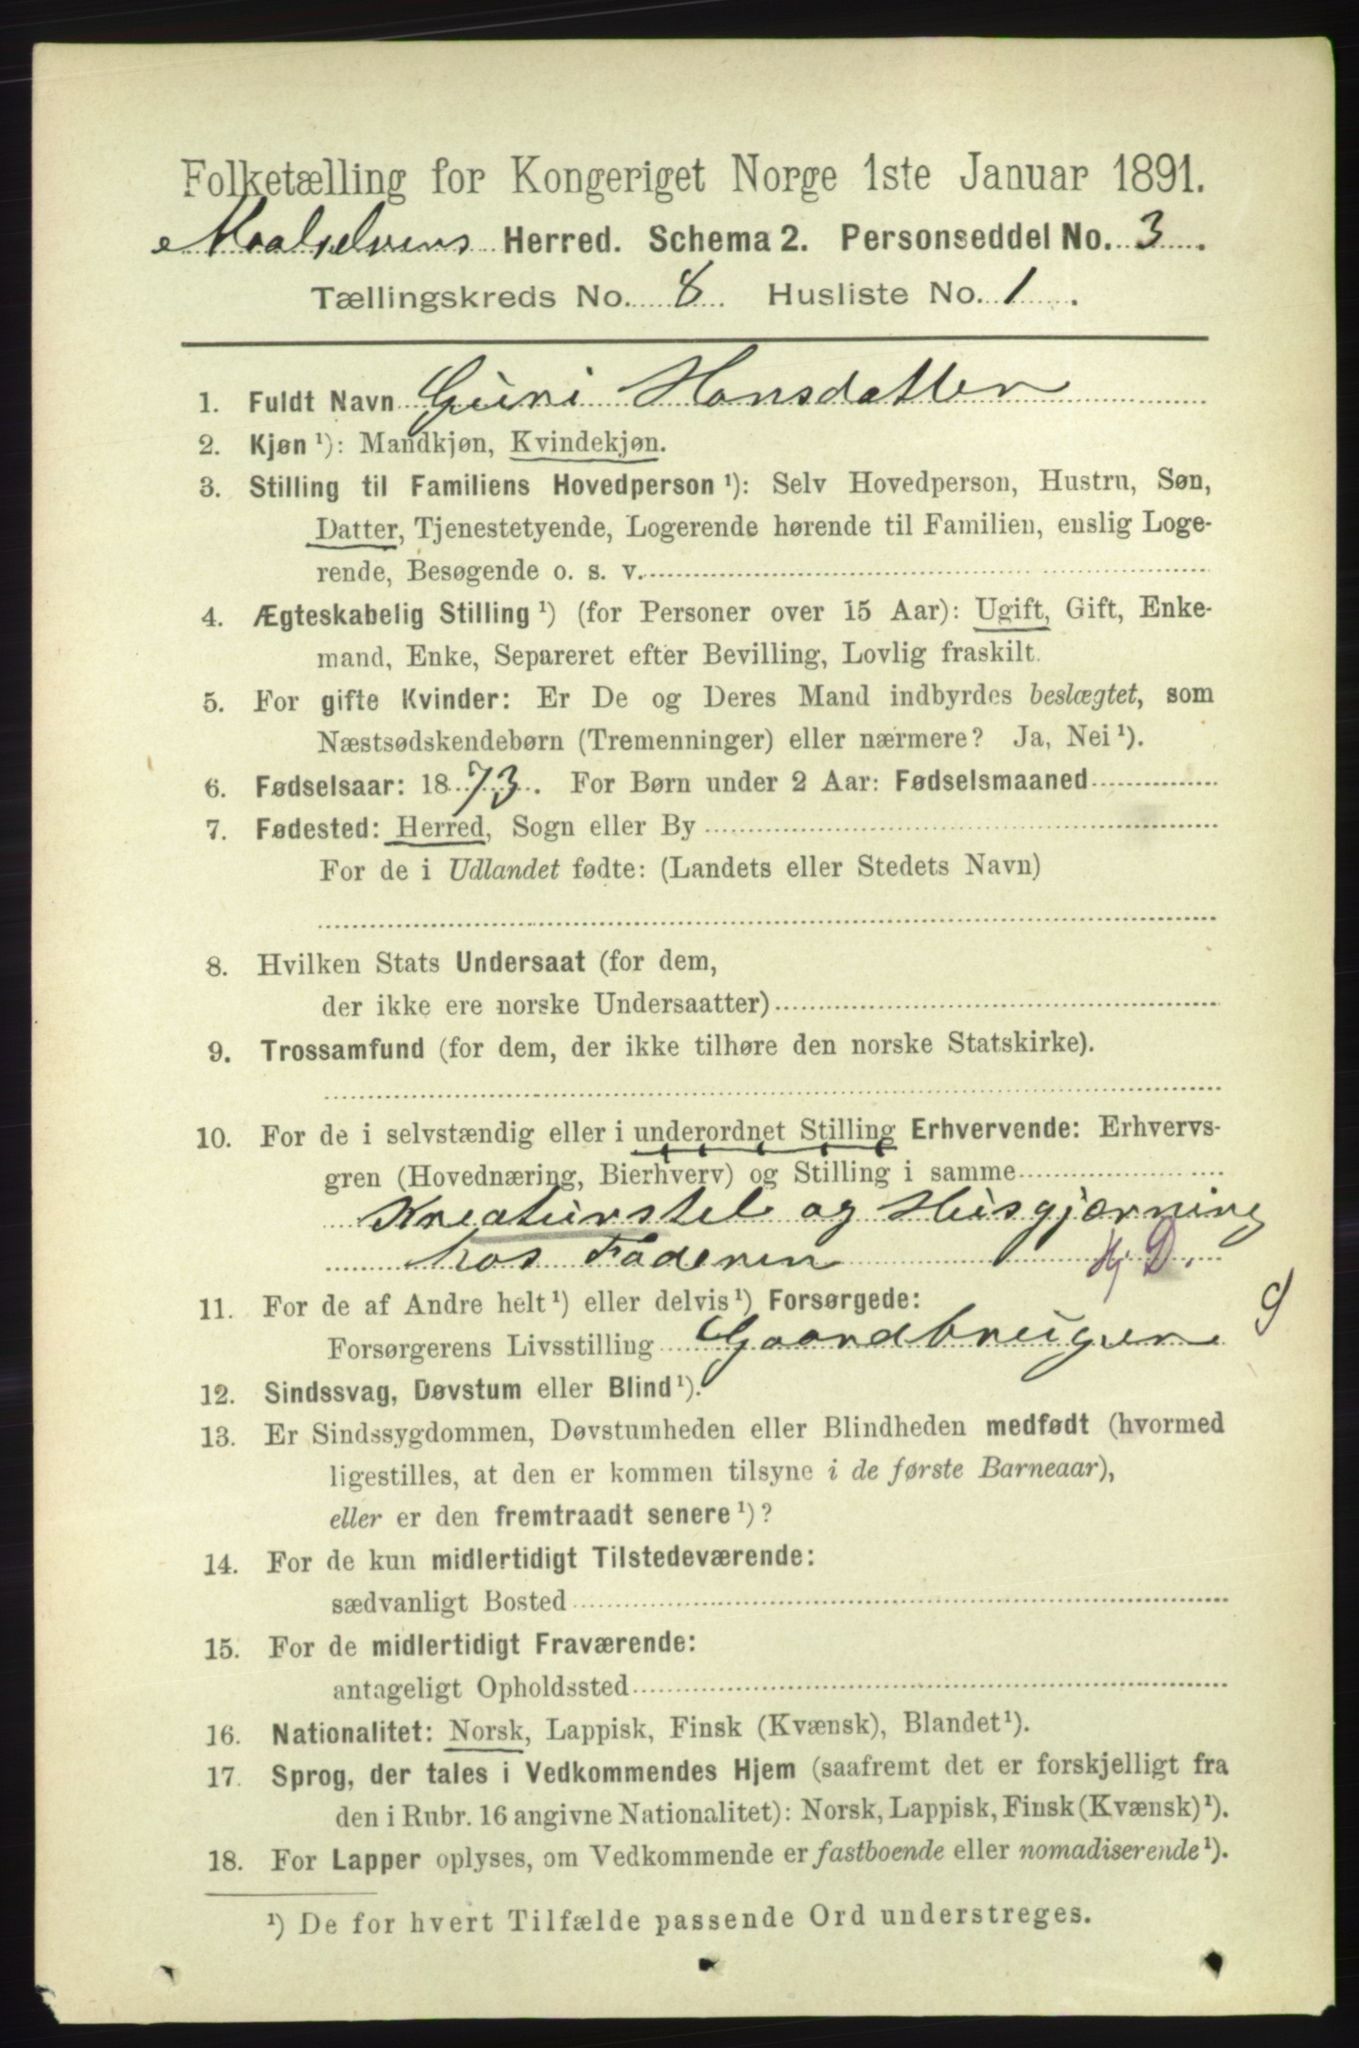 Folketælling for Kongeriget Norge 1ste Januar 1891.
Maalselvens Herred. Schema 2. Personseddel No. 3.
Tællingskreds No. 8 Husliste No. 1.
1. Fuldt Navn Guri Hansdatter
2. Kjøn ¹): Mandkjøn, Kvindekjøn.
3. Stilling til Familiens Hovedperson ¹): Selv Hovedperson, Hustru, Søn,
Datter, Tjenestetyende, Logerende hørende til Familien, enslig Loge-
rende, Besøgende o. s. v.
4. Ægteskabelig Stilling ¹) (for Personer over 15 Aar): Ugift, Gift, Enke-
mand, Enke, Separeret efter Bevilling, Lovlig fraskilt.
5. For gifte Kvinder: Er De og Deres Mand indbyrdes beslægtet, som
Næstsødskendebørn (Tremenninger) eller nærmere? Ja, Nei ¹).
6. Fødselsaar: 1873. For Børn under 2 Aar: Fødselsmaaned
7. Fødested: Herred, Sogn eller By
For de i Udlandet fødte: (Landets eller Stedets Navn)
8. Hvilken Stats Undersaat (for dem,
der ikke ere norske Undersaatter)
9. Trossamfund (for dem, der ikke tilhøre den norske Statskirke).
10. For de i selvstændig eller i underordnet Stilling Erhvervende: Erhvervs-
gren (Hovednæring, Bierhverv) og Stilling i samme
Kreaturstel og Husgjærning
hos Faderen Hj. D.
11. For de af Andre helt ¹) eller delvis ¹) Forsørgede:
Forsørgerens Livsstilling Gaardbruger 9
12. Sindssvag, Døvstum eller Blind ¹).
13. Er Sindssygdommen, Døvstumheden eller Blindheden medfødt (hvormed
ligestilles, at den er kommen tilsyne i de første Barneaar),
eller er den fremtraadt senere ¹)?
14. For de kun midlertidigt Tilstedeværende:
sædvanligt Bosted
15. For de midlertidigt Fraværende:
antageligt Opholdssted
16. Nationalitet: Norsk, Lappisk, Finsk (Kvænsk), Blandet ¹).
17. Sprog, der tales i Vedkommendes Hjem (saafremt det er forskjelligt fra
den i Rubr. 16 angivne Nationalitet): Norsk, Lappisk, Finsk (Kvænsk) ¹).
18. For Lapper oplyses, om Vedkommende er fastboende eller nomadiserende ¹).
¹) De for hvert Tilfælde passende Ord understreges.